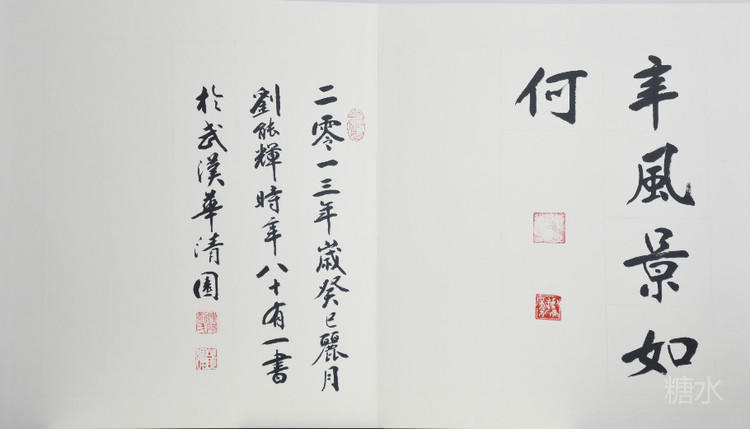 年風景如
何
二零一三年歲癸巳麗月
劉能輝時年八十有一書
於武漢華清園
糖水